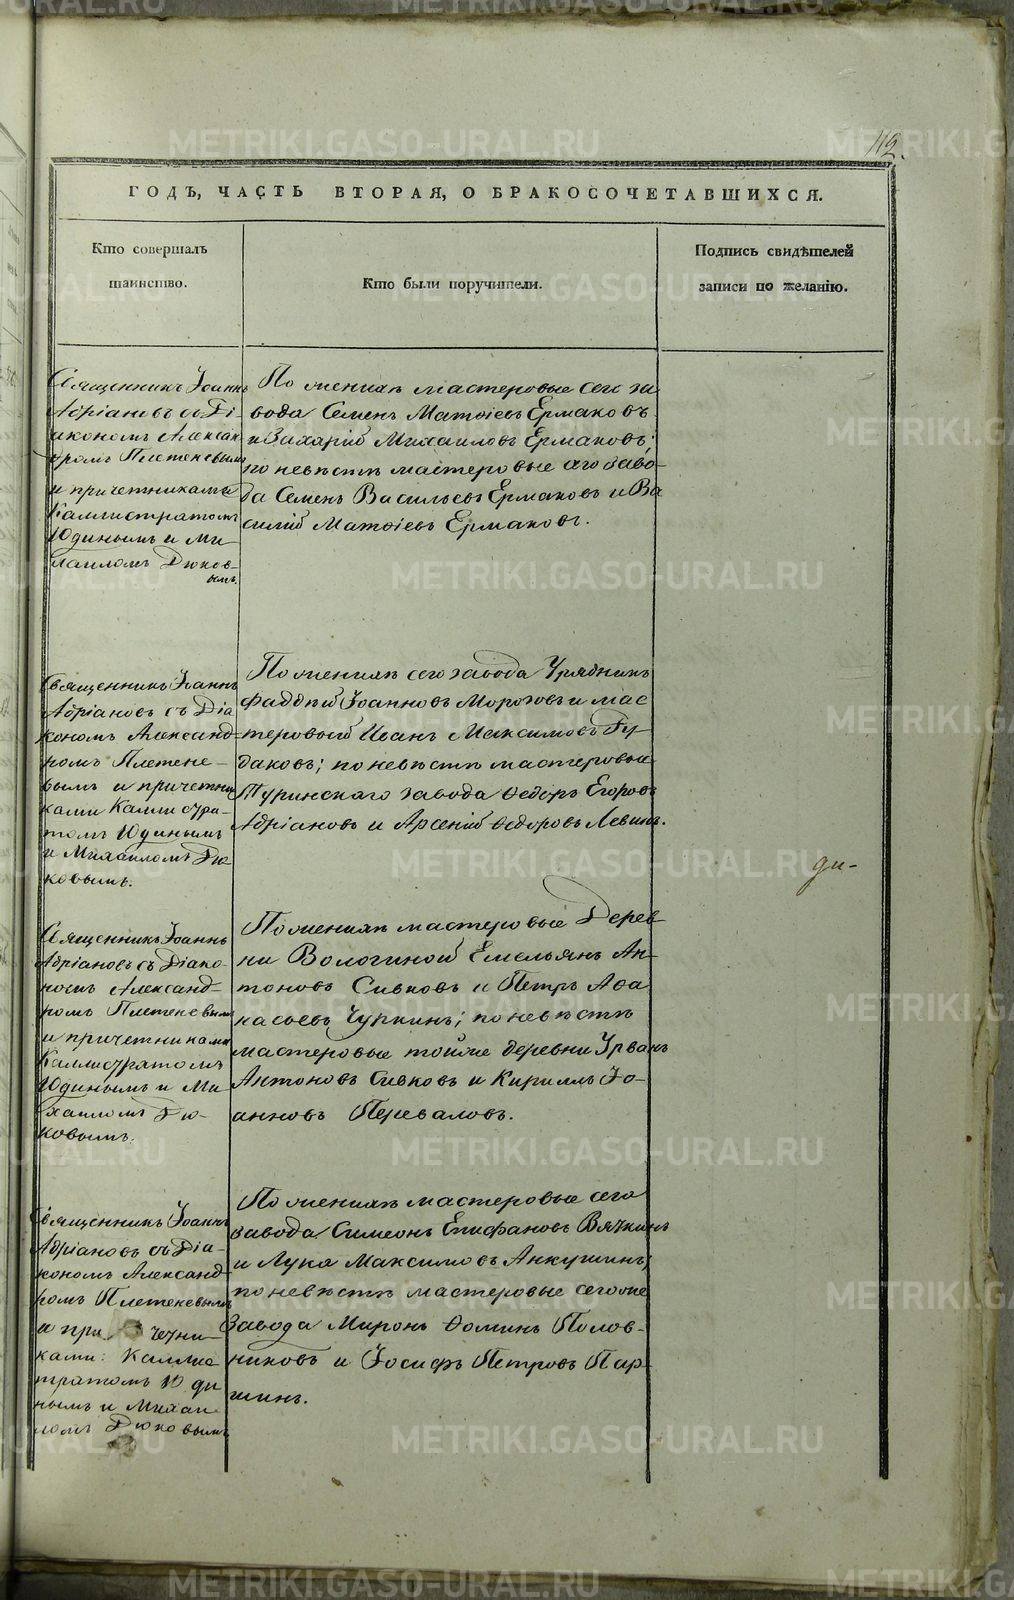 112.
ГОДЪ, ЧАСТЬ ВТОРАЯ, О БРАКОСОЧЕТАВШИХСЯ.
Кто совершалъ
таинство.
Кто были поручители.
Подпись свидѣтелей
записи по желанію.
Священникъ Іоаннъ
Адріановъ съ Ді-
акономъ Алексан
дромъ Плетеневымъ
и причетниками
Каллистратомъ
Юдинымъ и Ми-
хаиломъ Дюков-
вымъ.
По женихѣ мастеровые сего за
вода Семенъ Матѳіевъ Ермаковъ
и Захарій Михаиловъ Ермаковъ;
по невѣстѣ мастеровые аго заво-
да Семенъ Васильевъ Ермаковъ и Ва
силій Матѳіевъ Ермаковъ.
Священникъ Іоаннъ
Адріановъ съ Діа
кономъ Александ-
ромъ Плетене-
вымъ и причетни
ками Каллистра-
томъ Юдинымъ
и Михаиломъ Дю
ковымъ.
По женихѣ сего завода Урядникъ
Фаддѣй Іоанновъ Морозовъ и мас
теровый Иванъ Максимовъ Гу-
даковъ; по невѣстѣ мастеровые
Туринскаго завода Ѳедоръ Егоровъ
Адріановъ и Арсеній Ѳедоровъ Левинъ.
ди-
Священникъ Іоаннъ
Адріановъ съ Діако-
номъ Александ-
ромъ Плетеневымъ
и причетниками
Каллистратомъ
Юдинымъ и Ми-
хаиломъ Дю-
ковымъ.
По женихѣ мастеровые Дерев
ни Вологиной Емельянъ Ан-
тоновъ Сивковъ и Петръ Аѳа
насьевъ Чуркинъ; по невѣстѣ
мастеровые тойже деревни Урванъ
Антоновъ Сивковъ и Кириллъ Іо-
анновъ Переваловъ.
Священникъ Іоаннъ
Адріановъ съ Діа-
кономъ Александ-
ромъ Плетеневымъ
и при четни-
ками: Каллис
тратомъ Юди
нымъ и Михаи
ломъ Дюковымъ
По женихѣ мастеровые сего
завода Симеонъ Епифановъ Вяткинъ
и Лука Максимовъ Анкушинъ;
по невѣстѣ мастеровые сегоже
Завода Миронъ Ѳоминъ Полов-
никовъ и Іосифъ Петровъ Пар
шинъ.
METRIKI.GASO-URAL.RU